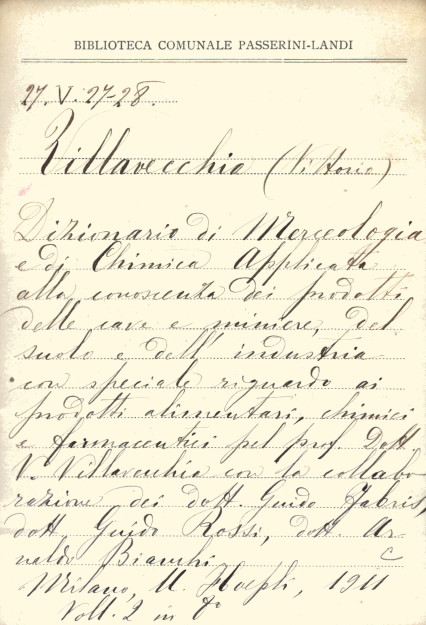 BIBLIOTECA COMUNALE PASSERINI-LANDI
27. V. 27-28.
Villavecchia (Vittorio)
Dizionario di Merceologia
e di Chimica Applicata
alla conoscenza dei prodotti
delle cave e miniere, del
suolo e dell'industria
con speciale riguardo ai
prodotti alimentari, chimici
e farmaceutici pel prof. Dott
V. Villavecchia con la collabo
razione dei dott. Guido Fabris,
dott. Guido Rossi, dott. Ar-
naldo Bianchi
Milano, U. Hoepli, 1911
Voll. 2 in 8°